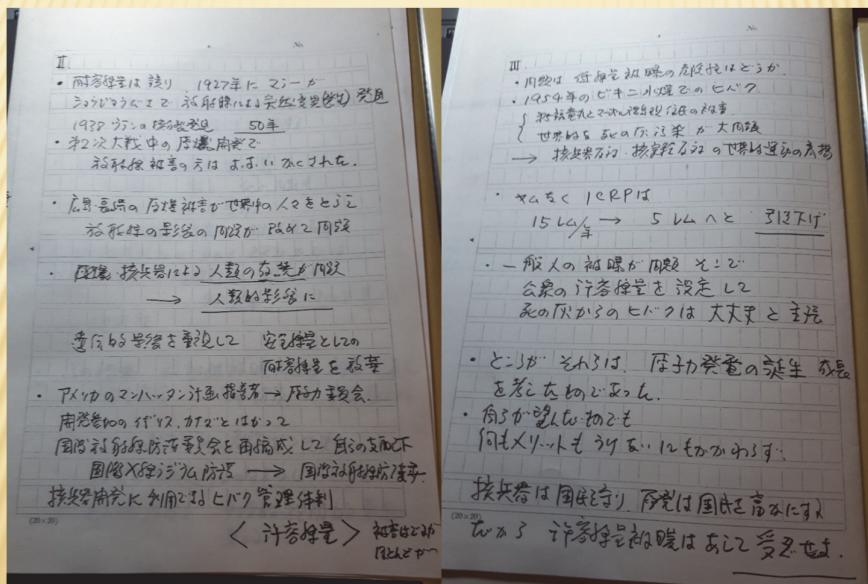 No.
II
・耐容線量は誤り 1927年にマラーが
ショウジョウバエで放射線による突然変異発生 発見
1938 ウランの核分裂発見 50年
・第2次大戦中の原爆開発で
放射線被害の方は いかくされた.
・広島・長崎の原爆被害が世界中の人々をとらえ
放射線の影響の問題が改めて問題
・原爆・核兵器による人類の 問題
→ 人類的影響に
遺伝的影響を重視して 安全線量としての
耐容線量を放棄
・アメリカのマンハッタン計画指導者→原子力委員会.
開発参加のイギリス、カナダとはかって
国際放射線防護委員会を再構成して 自らの支配下
国際X線ラジウム防護 → 国際放射線防護委
核兵器開発に利用できるヒバク管理体制
<許容線量> 被害はでるが
ほとんど
(20×20)
No.
III
・問題は低線量被曝の危険性はどうか.
・1954年のビキニ水爆でのヒバク
世界的な死の灰汚染が大問題
→ 核兵器反対・核実験反対の世界的運動の広揚
・やむなく ICRPは
15レム/年 → 5レムへと 引き下げ
・一般人の被曝が問題 そこで
公衆の許容線量を設定して
死の灰からのヒバクは大丈夫と主張
・ところが それらは、原子力発電の誕生 成長
を考えたものであった.
・自らが望んだものでも
何もメリットもうけないにもかかわらず.
核兵器は国民を守り、原発は国民を豊かにする
だから 許容線量被曝は 受忍せよ.
(20×20)